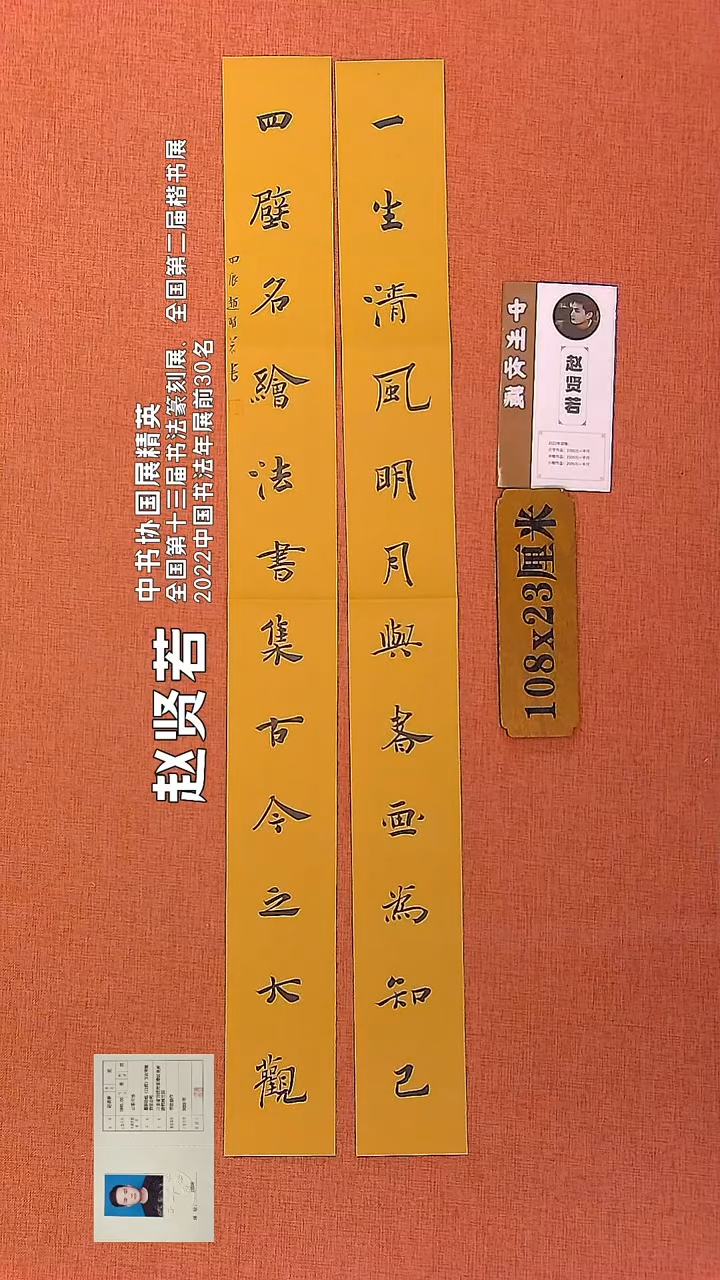 一生清風明月與書画為知己
四壁名繪法書集古今之大觀
中书协国展精英
全国第十三届书法篆刻展、全国第二届楷书展
2022中国书法年展前30名
赵贤若
赵贤若
108x23厘米